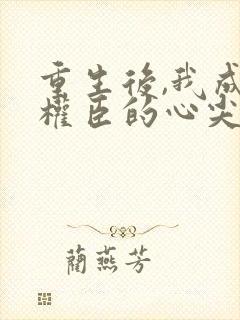 重生後,我成
權臣的心尖
藺燕芳